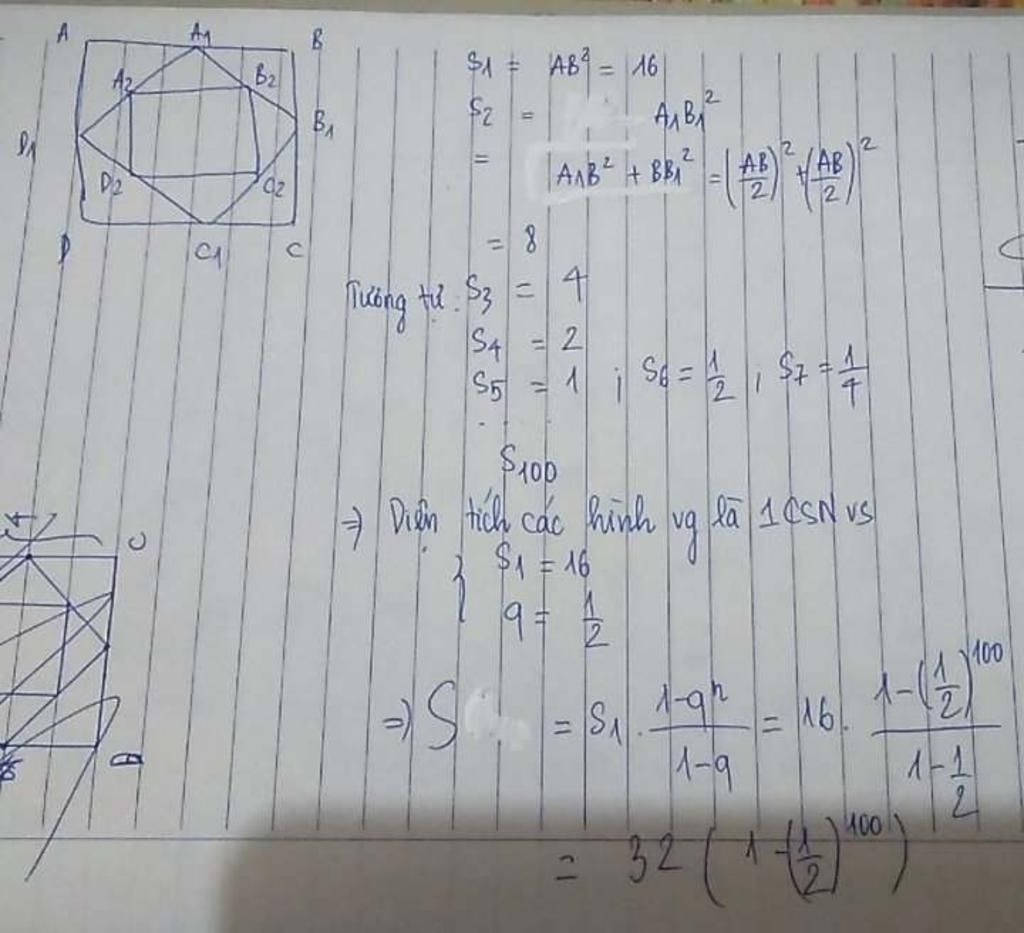 A A1 B
A2 B2
D1 B1
D2 C2
D C1 C
S1 = AB² = 16
S2 = A1B1²
= A1B² + BB1² = (AB/2)² + (AB/2)²
= 8
Tương tự: S3 = 4
S4 = 2
S5 = 1 ; S6 = 1/2 ; S7 = 1/4
. . .
S100
=> Diện tích các hình vg là 1 CSN vs
{ S1 = 16
q = 1/2
=> S = S1 . (1-qⁿ)/(1-q) = 16 . (1-(1/2)¹⁰⁰)/(1-1/2)
= 32 (1-(1/2)¹⁰⁰)